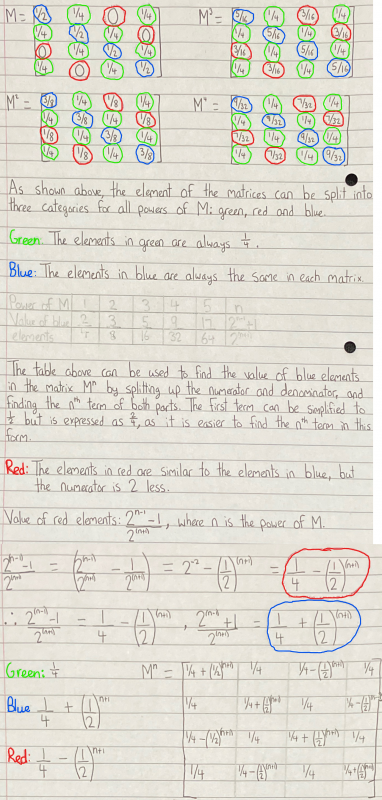 M = 1/2 1/4 0 1/4 M³ = 5/16 1/4 3/16 1/4
1/4 1/2 1/4 0 1/4 5/16 1/4 3/16
0 1/4 1/2 1/4 3/16 1/4 5/16 1/4
1/4 0 1/4 1/2 1/4 3/16 1/4 5/16
M² = 3/8 1/4 1/8 1/4 M⁴ = 9/32 1/4 7/32 1/4
1/4 3/8 1/4 1/8 1/4 9/32 1/4 7/32
1/8 1/4 3/8 1/4 7/32 1/4 9/32 1/4
1/4 1/8 1/4 3/8 1/4 7/32 1/4 9/32
As shown above, the element of the matrices can be split into
three categories for all powers of M: green, red and blue.
Green: The elements in green are always 1/4.
Blue: The elements in blue are always the same in each matrix.
Power of M 1 2 3 4 5 n
Value of blue elements 2/4 3/8 5/16 9/32 17/64
The table above can be used to find the value of blue elements
in the matrix Mⁿ by splitting up the numerator and denominator, and
finding the nᵗʰ term of both parts. The first term can be simplified to
1/2 but is expressed as 2/4, as it is easier to find the nᵗʰ term in this
form.
Red: The elements in red are similar to the elements in blue, but
the numerator is 2 less.
Value of red elements: (2^(n-1) - 1)/2^(n+1), where n is the power of M.
(2^(n-1) - 1)/2^(n+1) = (2^(n-1)/2^(n+1) - 1/2^(n+1)) = 2^-2 - (1/2)^(n+1) = 1/4 - (1/2)^(n+1)
∴ (2^(n-1) - 1)/2^(n+1) = 1/4 - (1/2)^(n+1), (2^(n-1) + 1)/2^(n+1) = 1/4 + (1/2)^(n+1)
Green: 1/4 Mⁿ = 1/4 + (1/2)^(n+1) 1/4 1/4 - (1/2)^(n+1) 1/4
Blue 1/4 + (1/2)^(n+1) 1/4 1/4 + (1/2)^(n+1) 1/4 1/4 - (1/2)
1/4 - (1/2)^(n+1) 1/4 1/4 + (1/2)^(n+1) 1/4
Red: 1/4 - (1/2)^(n+1) 1/4 1/4 - (1/2)^(n+1) 1/4 1/4 + (1/2)^(n+1)